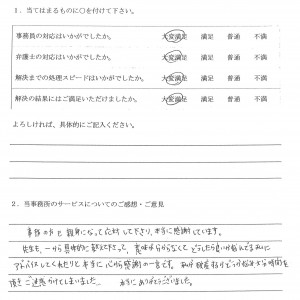 1．当てはまるものに○を付けて下さい。
事務員の対応はいかがでしたか。 大変満足 満足 普通 不満
弁護士の対応はいかがでしたか。 大変満足 満足 普通 不満
解決までの処理スピードはいかがでしたか。 大変満足 満足 普通 不満
解決の結果にはご満足いただけましたか。 大変満足 満足 普通 不満
よろしければ、具体的にご記入ください。
2．当事務所のサービスについてのご感想・ご意見
事務の方も親身になって応対して下さり、本当に感謝しています。
先生も、一から具体的に教えて下さって、意味が分からなくてどうしたら良いか悩んでる私に
アドバイスしてくれたりと本当に心から感謝の一言です。私が
ご迷惑かけてしまいました。 本当にありがとうございました。